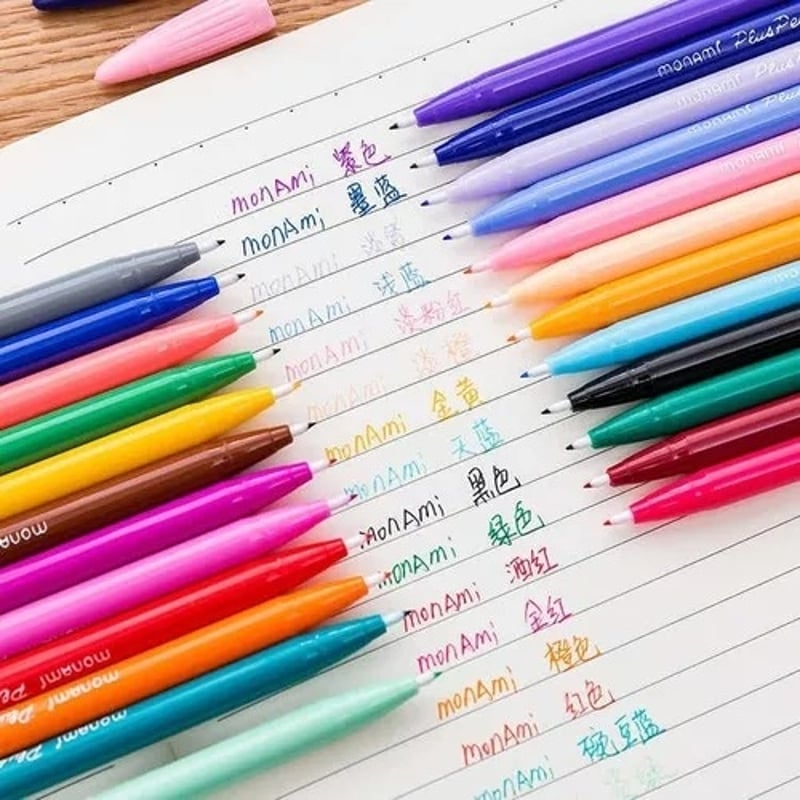 monAmi 紫色
monAmi 墨蓝
monAmi 淡紫
monAmi 浅蓝
monAmi 淡粉红
monAmi 淡橙
monAmi 金黄
monAmi 天蓝
monAmi 黑色
monAmi 绿色
monAmi 酒红
monAmi 金红
monAmi 橙色
monAmi 红色
monAmi 碗豆蓝
monami PlusPe
monami PlusPe
monami Plus
monami
monami
mona
monami
monami Plus
monami